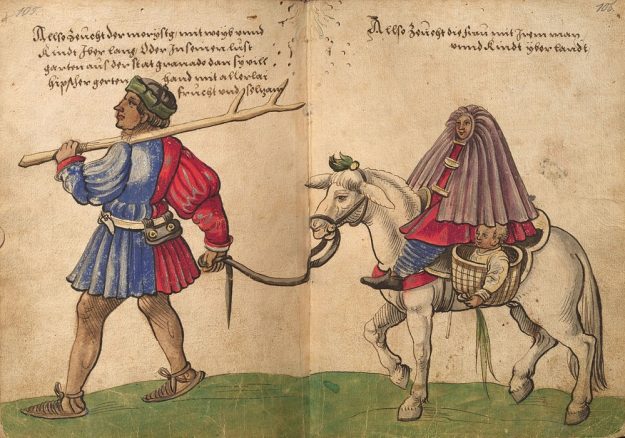 105
Allso zeucht der morysch mit weyb vnnd
Kindt Iber lang Oder In seinen lust
garten aus der stat granado dan sy vill
hipscher gerten hand mit allerlai
frucht vnd
106
Allso zeucht die frau mit Irem man
vnnd Kindt yber landt